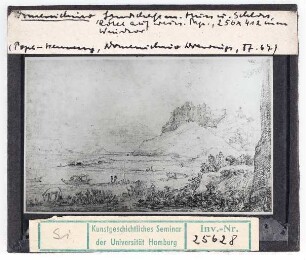 Domenichino Landschaft m. Fluss u. Schloss,
Rötel auf weiss. Pap., 256 x 402 mm
Windsor
(Pope-Hennessy, Domenichino Drawings,
Kunstgeschichtliches Seminar
der Universität Hamburg
Inv.-Nr.
25628